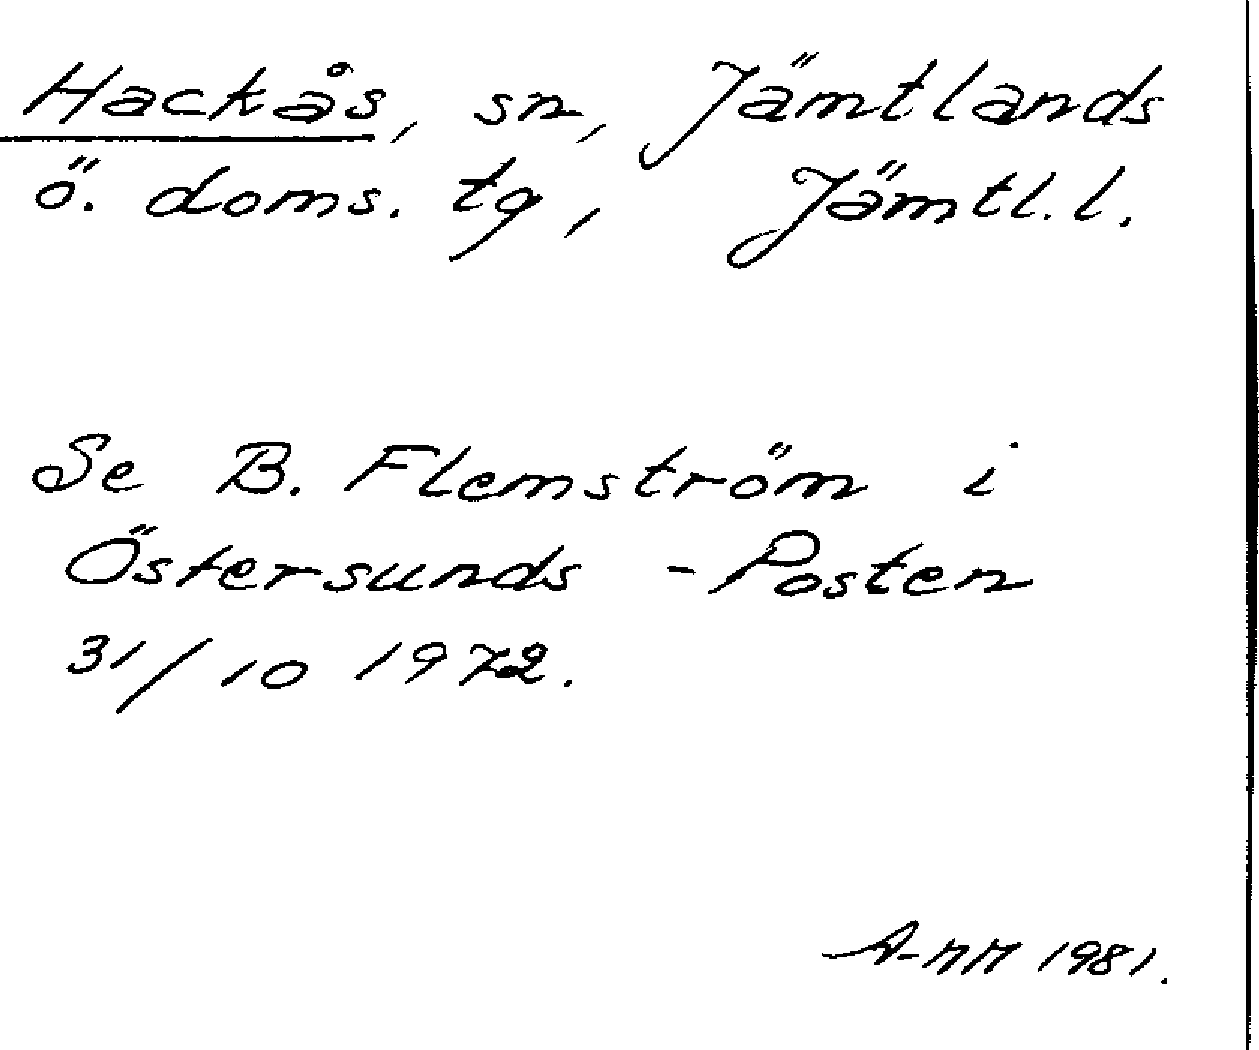 Hackås, sn, Jämtlands
ö. doms. tg, Jämtl. l.
Se B. Flemström i
Östersunds - Posten
31/10 1972.
A-MM 1981.